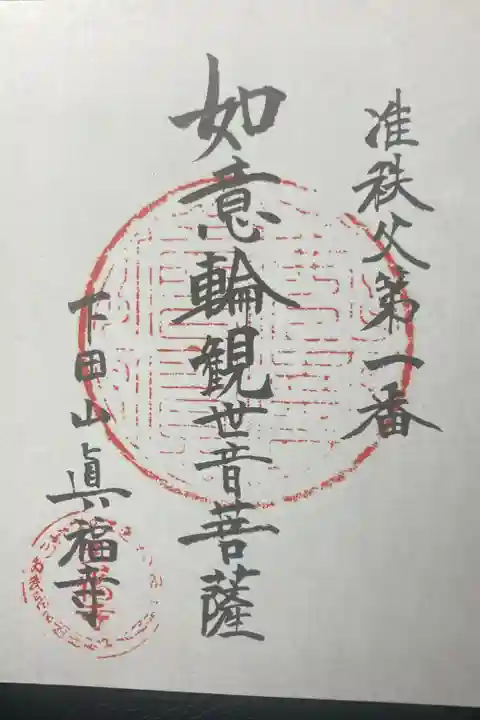 准秩父第一番
如意輪観世音菩薩
下田山眞福寺